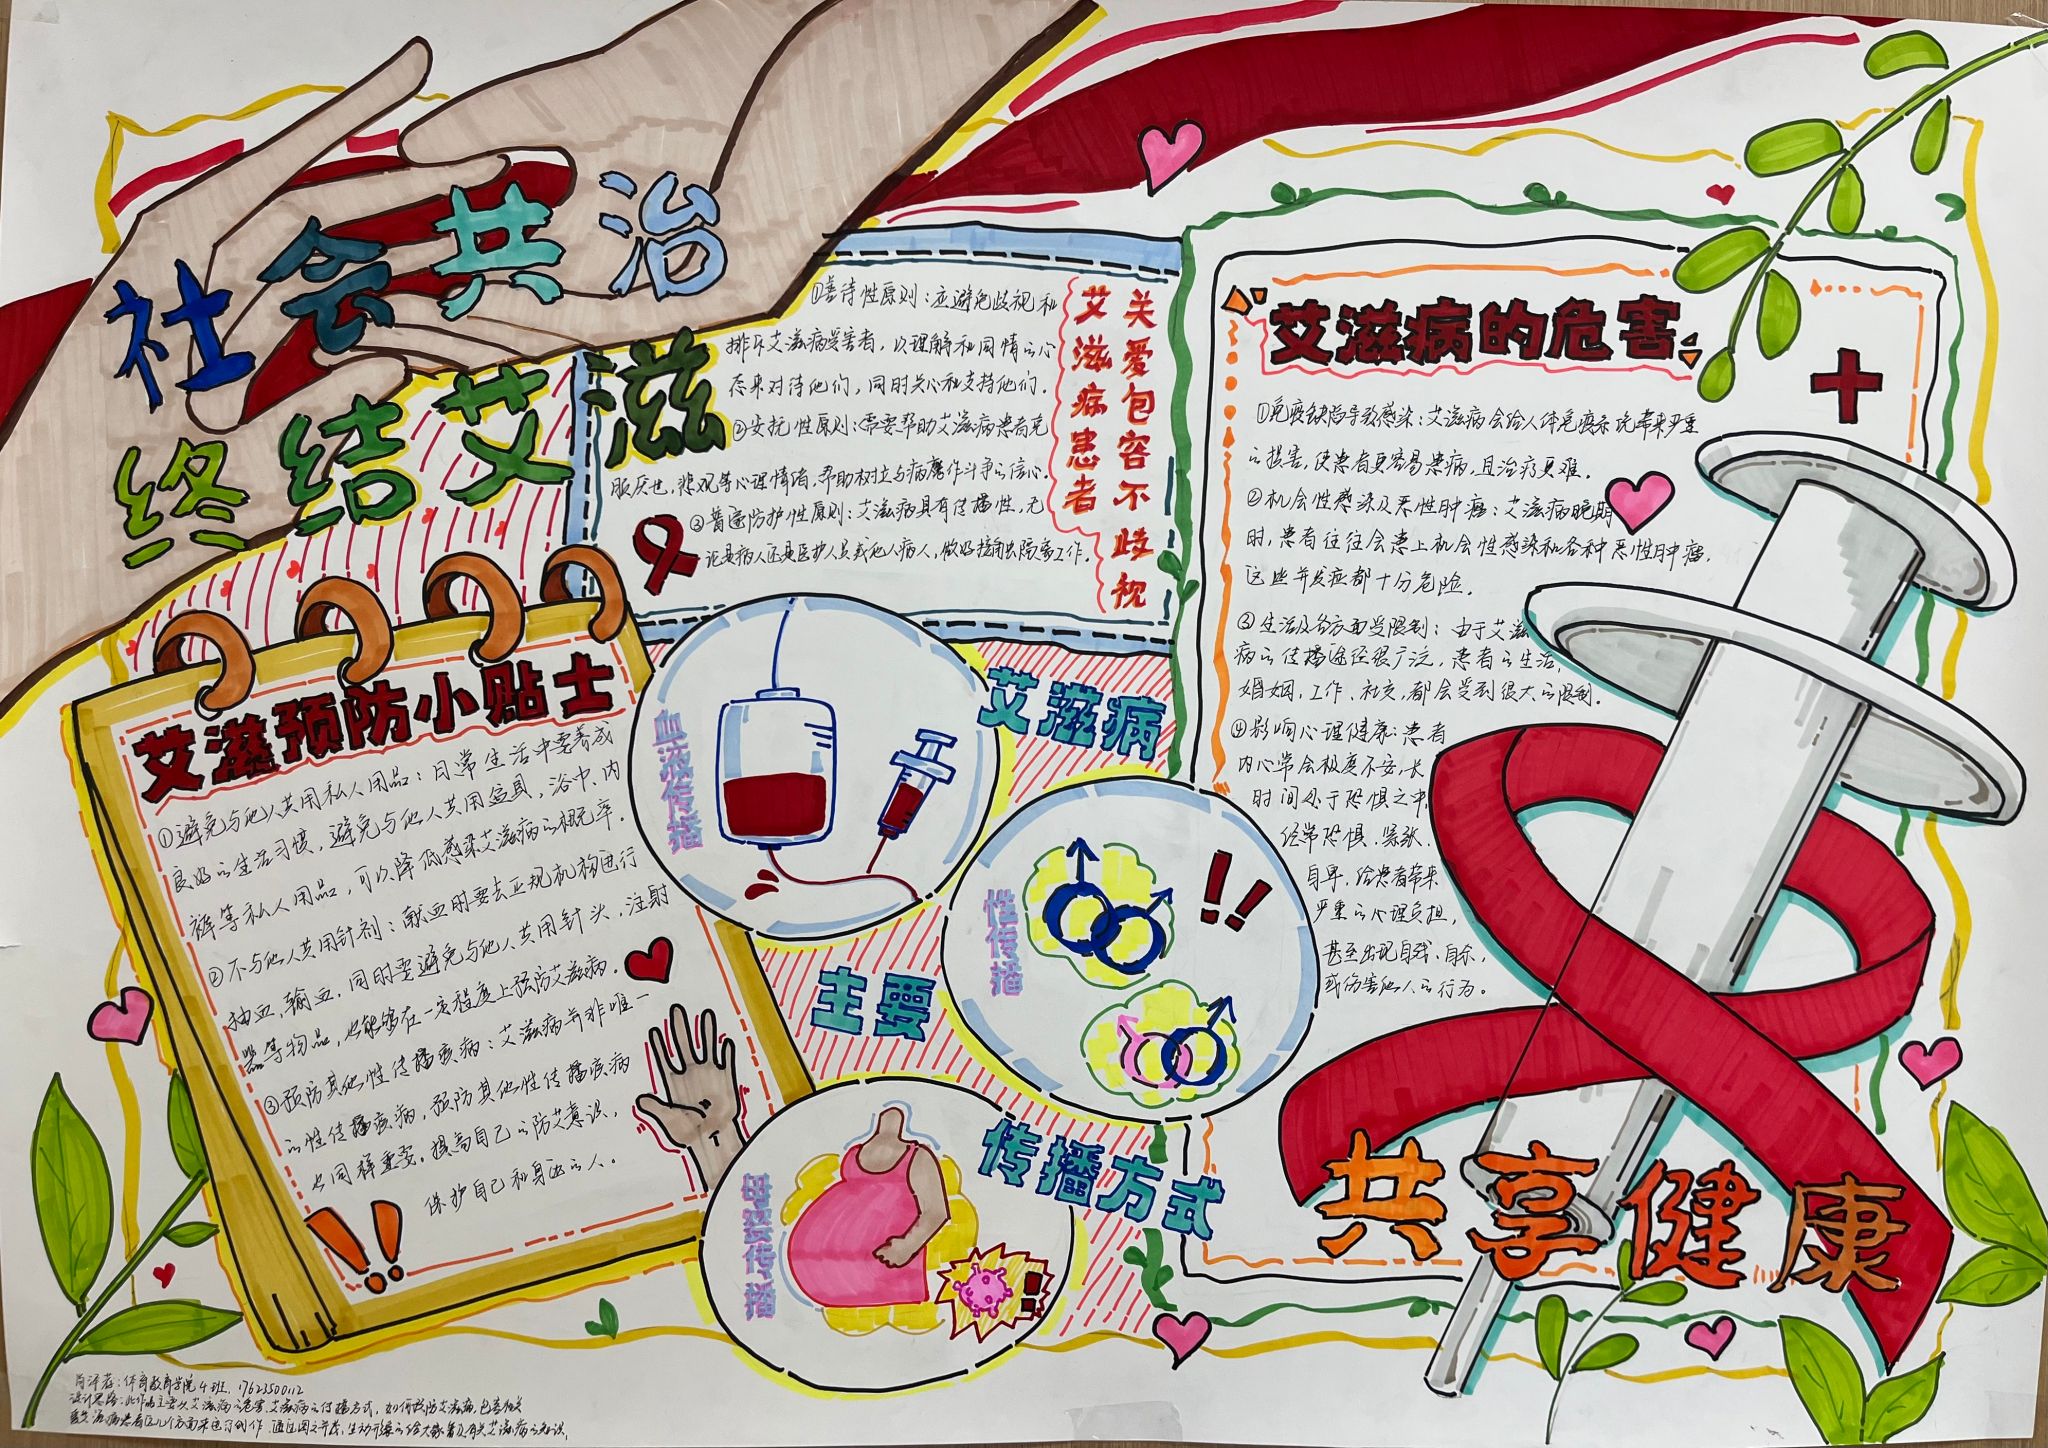 社会共治
终结艾滋
①善待性原则:应避免歧视和
排斥艾滋病受害者,以理解和同情的心
态来对待他们,同时关心和支持他们.
②安抚性原则:需要帮助艾滋病患者克
服厌世,悲观等心理情绪,帮助树立与病魔作斗争的信心.
③普遍防护性原则:艾滋病具有传播性,无
论是病人还是医护人员或他人病人,做好接触隔离工作.
关爱包容不歧视
艾滋病患者
艾滋病的危害
①免疫缺陷导致感染:艾滋病会给人体免疫系统带来严重
的损害,使患者更容易患病,且治疗更难.
②机会性感染及恶性肿瘤:艾滋病晚期
时,患者往往会患上机会性感染和各种恶性肿瘤,
这些并发症都十分危险.
③生活及各方面受限制:由于艾滋
病的传播途径很广泛,患者的生活,
婚姻,工作、社交,都会受到很大的限制.
④影响心理健康:患者
内心常会极度不安,长
时间处于恐惧之中,
经常恐惧、紧张、
自卑,给患者带来
严重的心理负担,
甚至出现自残、自杀,
或伤害他人的行为。
艾滋预防小贴士
①避免与他人共用私人用品:日常生活中要养成
良好的生活习惯,避免与他人共用浴具,浴巾、内
裤等私人用品,可以降低感染艾滋病的概率.
②不与他人共用针剂:献血时要去正规机构进行
抽血、输血,同时要避免与他人共用针头,注射
器等物品,也能够在一定程度上预防艾滋病.
③预防其他性传播疾病:艾滋病并非唯一
的性传播疾病,预防其他性传播疾病
也同样重要。提高自己的防艾意识,
保护自己和身边的人。
艾滋病
主要
传播方式
血液传播
性传播
母婴传播
共享健康
体育教育学院4班,17623500112
设计思路:此作品主要以艾滋病的危害、艾滋病的传播方式,如何预防艾滋病,包容和关
爱艾滋病患者这几个方面来进行创作.通过图文并茂,生动形象的给大家普及有关艾滋病的知识.